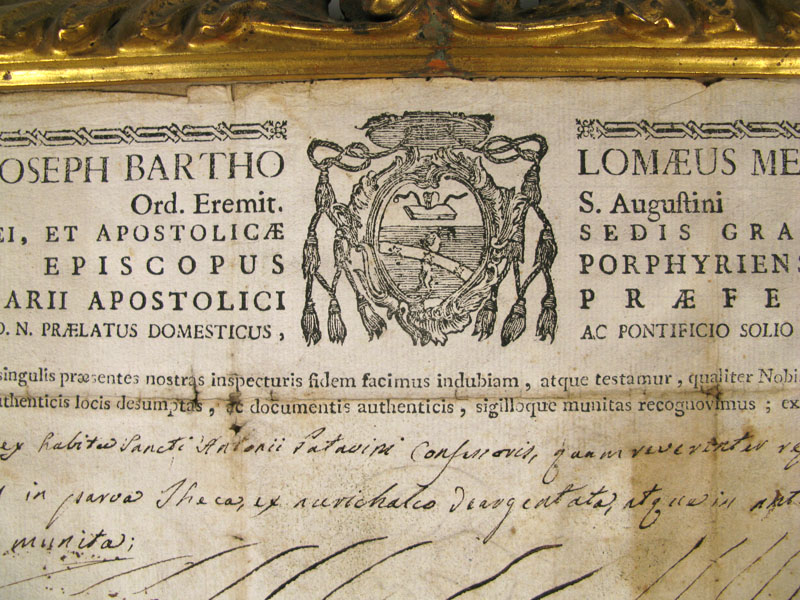 OSEPH BARTHO LOMÆUS ME
Ord. Eremit. S. Auguſtini
EI, ET APOSTOLICÆ SEDIS GRA
EPISCOPUS PORPHYRIENS
ARII APOSTOLICI PRÆFE
D. N. PRÆLATUS DOMESTICUS, AC PONTIFICIO SOLIO
singulis præsentes nostras inspecturis fidem facimus indubiam, atque testamur, qualiter Nobi
uthenticis locis desumptas, ac documentis authenticis, sigilloque munitas recognovimus; ex
ex habitu Sancti Antonii Patavini Confessoris, quam reverenter re
in parva Theca, ex aurichalco deargentata, atque in
munita;